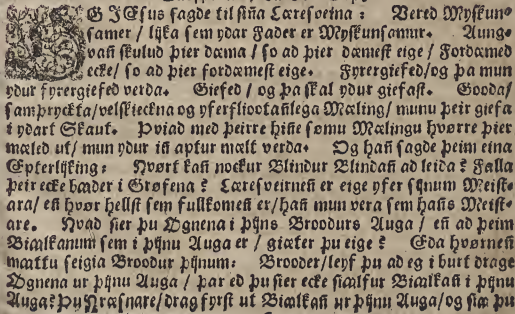 OG JEsus sagde til sijna Læresveina : Vered Myskun⸗
samer / lijka sem ydar Fader er Myskunsamur. Aung⸗
vañ skulud þier dæma / so ad þier dæmest eige / Fordæmed
ecke / so ad þier fordæmest eige. Fyrergiefed / og þa mun
ydur fyrergiefed verda. Giefed / og þa skal ydur giefast. Gooda /
sampryckta / velskieckna og yferfliootañlega Mæling / munu þeir giefa
i ydart Skaut. Þviad med þeirre hiñe sømu Mælingu hvørre þier
mæled ut / mun ydur iñ aptur mælt verda. Og hañ sagde þeim eina
Epterlijking : Hvørt kañ nockur Blindur Blindañ ad leida ? Falla
þeir ecke bæder i Grøfena ? Læresveirneñ er eige yfer sijnum Meist⸗
ara / eñ hvør hellst sem fullkomeñ er / hañ mun vera sem hañs Meist⸗
are. Hvad sier þu Øgnena i þijns Broodurs Auga / eñ ad þeim
Biælkanum sem i þijnu Auga er / giæter þu eige ? Eda hvørneñ
mættu seigia Broodur þijnum : Brooder / leyf þu ad eg i burt drage
Øgnena ur þijnu Auga / þar ed þu sier ecke siælfur Biælkañ i þijnu
Auga ? Þu Hræsnare / drag fyrst ut Biælkañ ur þijnu Auga / og siæ þu